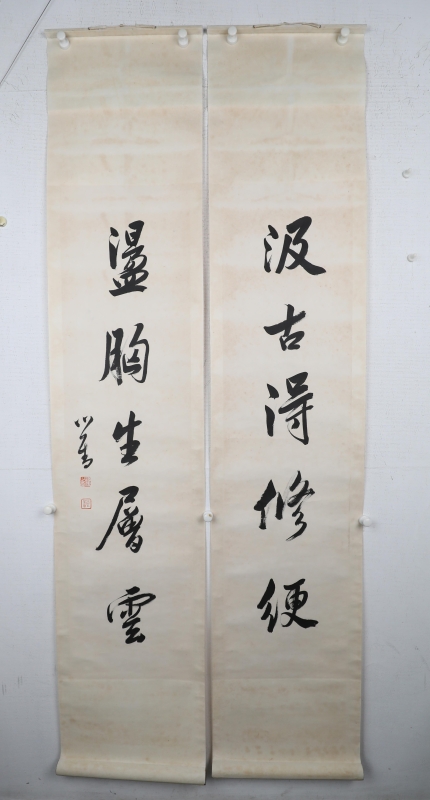 汲古得修綆
盪胸生層雲
心畬